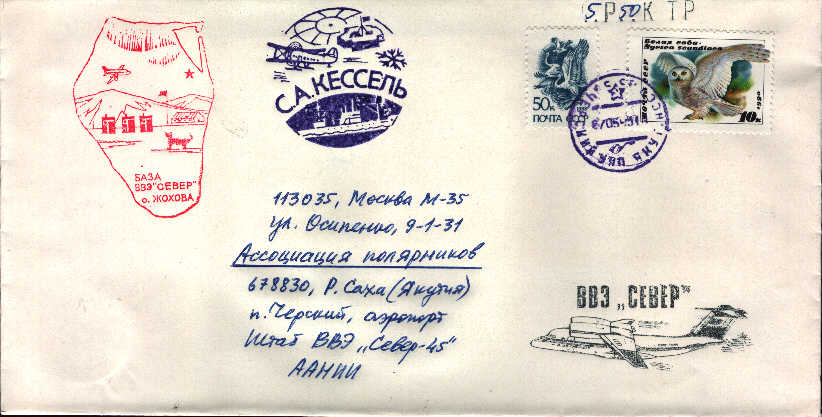 5.50
Р К ТР
С.А. КЕССЕЛЬ
50к
ПОЧТА СССР
Белая сова.
Nyctea scandiaca
10к
1990
БАЗА
ВВЭ "СЕВЕР"
о. ЖОХОВА
113035, Москва М-35
ул. Осипенко, 9-1-31
Ассоциация полярников
678830, Р. Саха (Якутия)
п. Черский, аэропорт
Штаб ВВЭ „Север-45"
ААНИИ
ВВЭ „СЕВЕР"